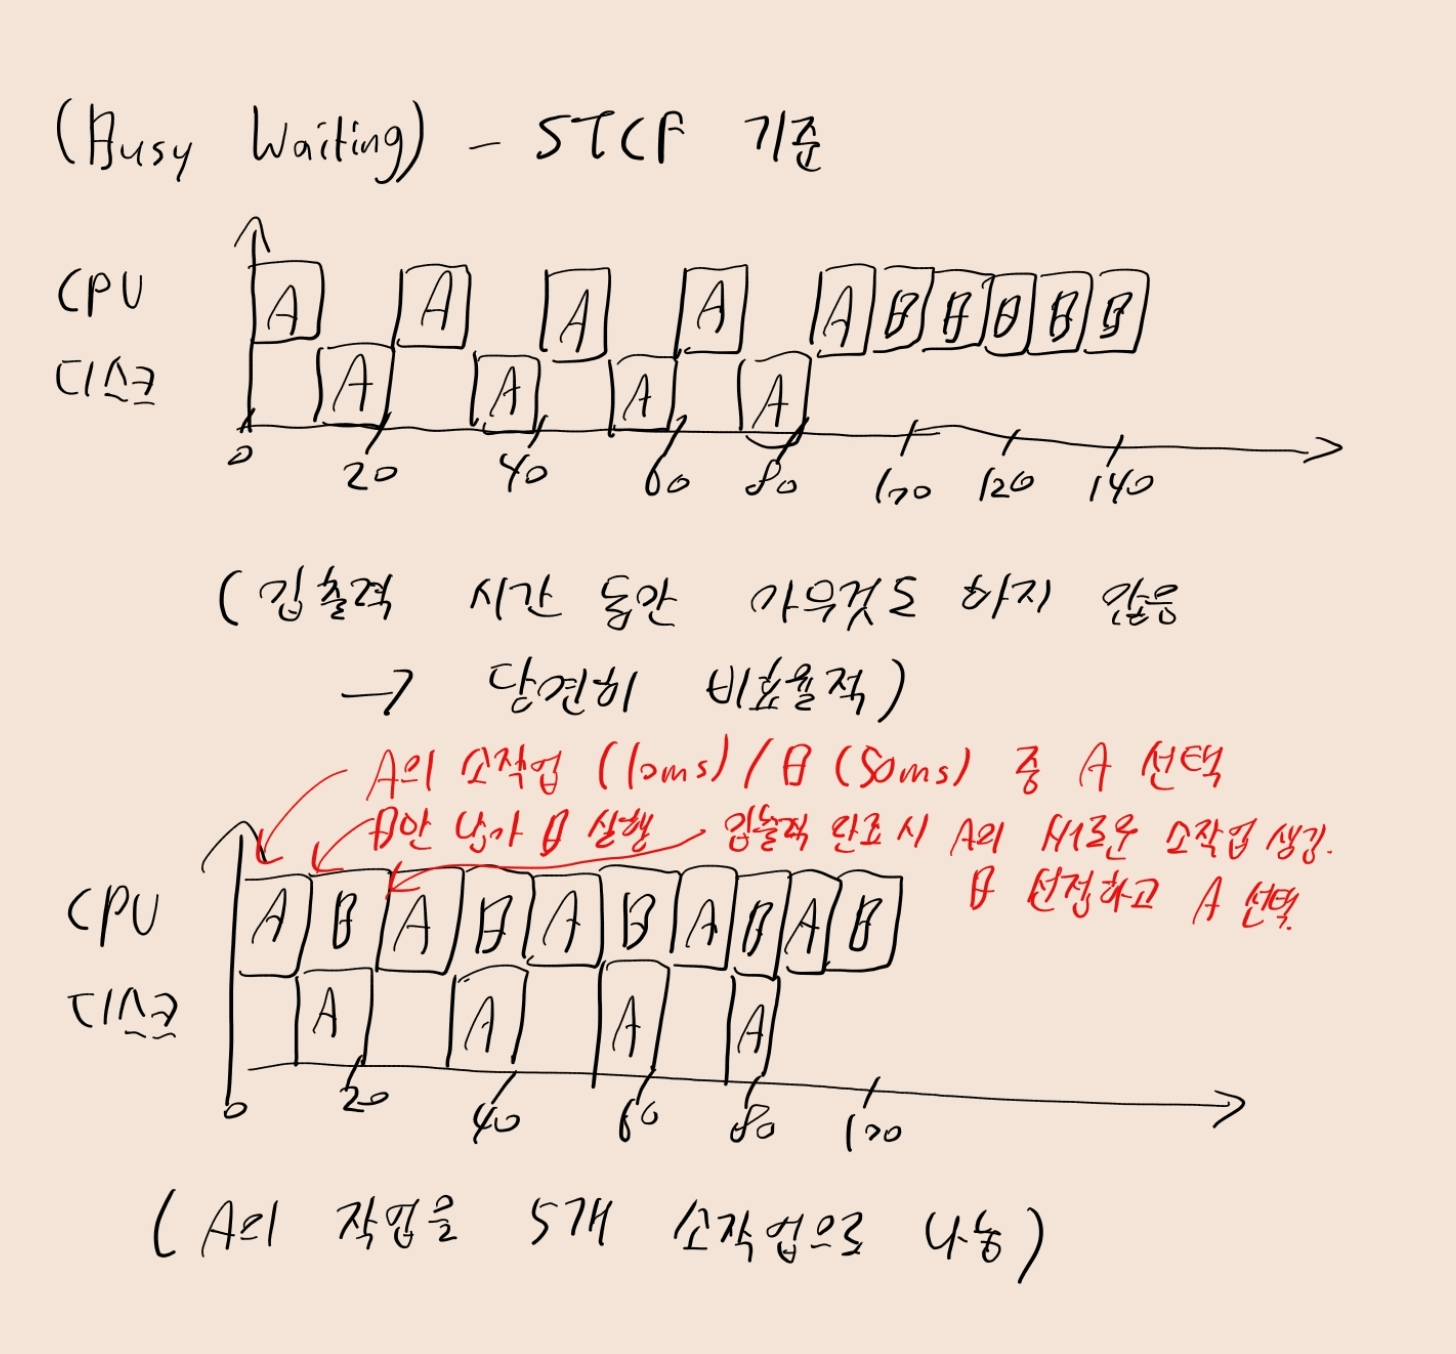 (Busy Waiting) - STCF 기준
CPU A A A A A B B B B B
디스크 A A A A
0 20 40 60 80 100 120 140
(입출력 시간 동안 아무것도 하지 않음
→ 당연히 비효율적)
A의 소작업 (10ms) / B (50ms) 중 A 선택
B만 남아 B 실행 입출력 완료시 A의 새로운 소작업 생김.
B 선점하고 A 선택.
CPU A B A B A B A B A B
디스크 A A A A
0 20 40 60 80 100
(A의 작업을 5개 소작업으로 나눔)